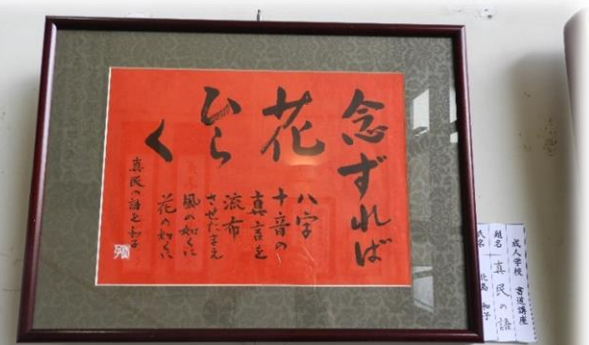 念ずれば
花
ひら
く
八字
十音の
真言を
流布
させたまえ
風の如くに
花の如くに
真民の語を 和子
成人学校 書道講座
題名 真民の語
氏名 北島 和子